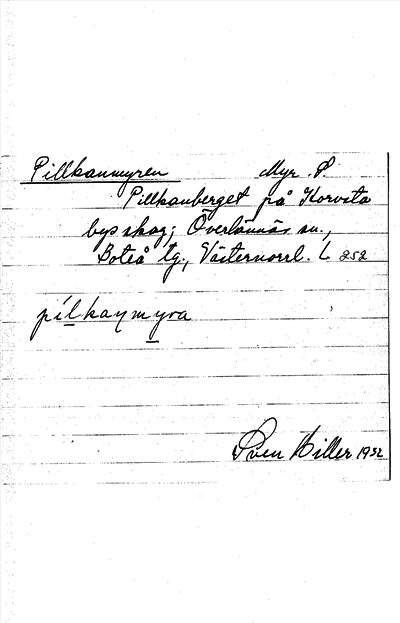 Pillkanmyren Myr S.
Pillkanberget på Korvsta
byskog; Överlännäs sn.,
Boteå tg., Västernorrl. L 252
Sven Hiller 1932